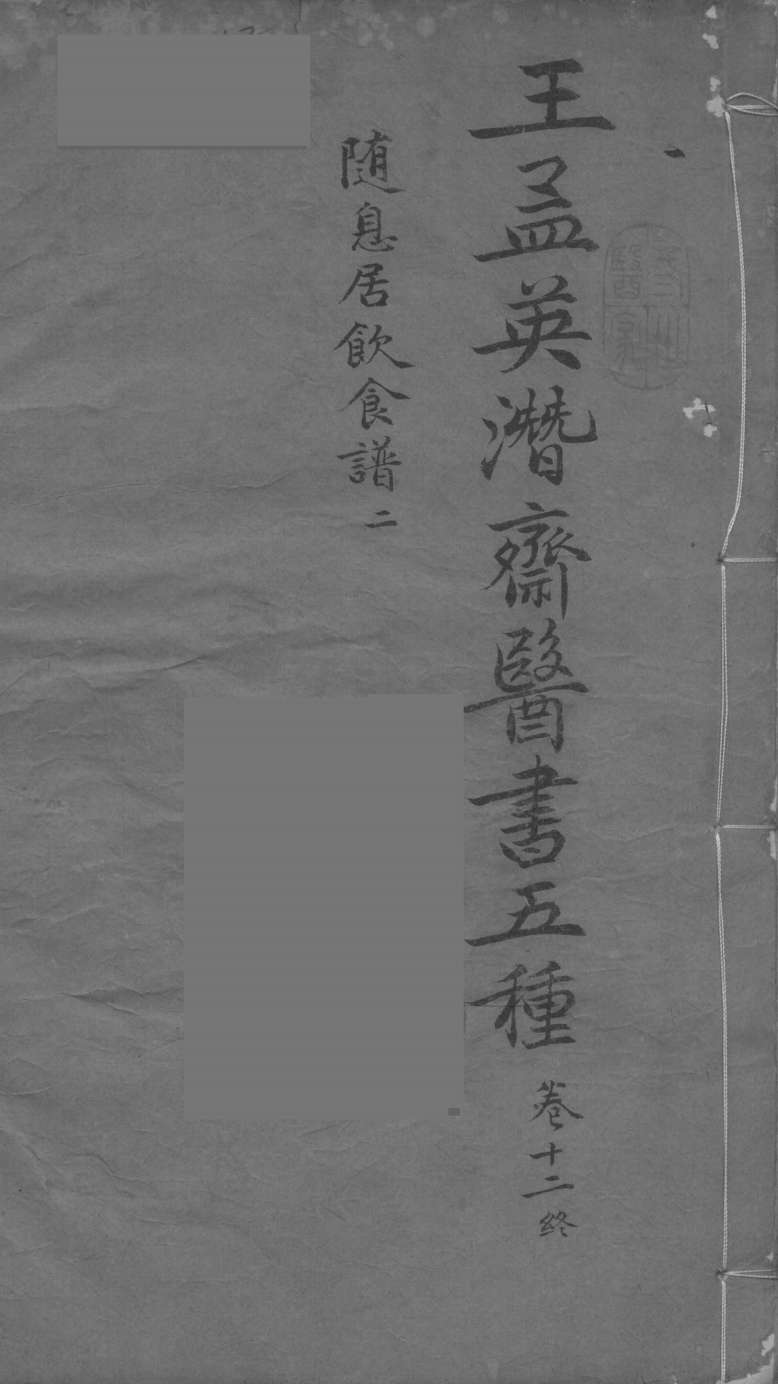 王孟英潛齋醫書五種
卷十二終
随息居飲食譜二